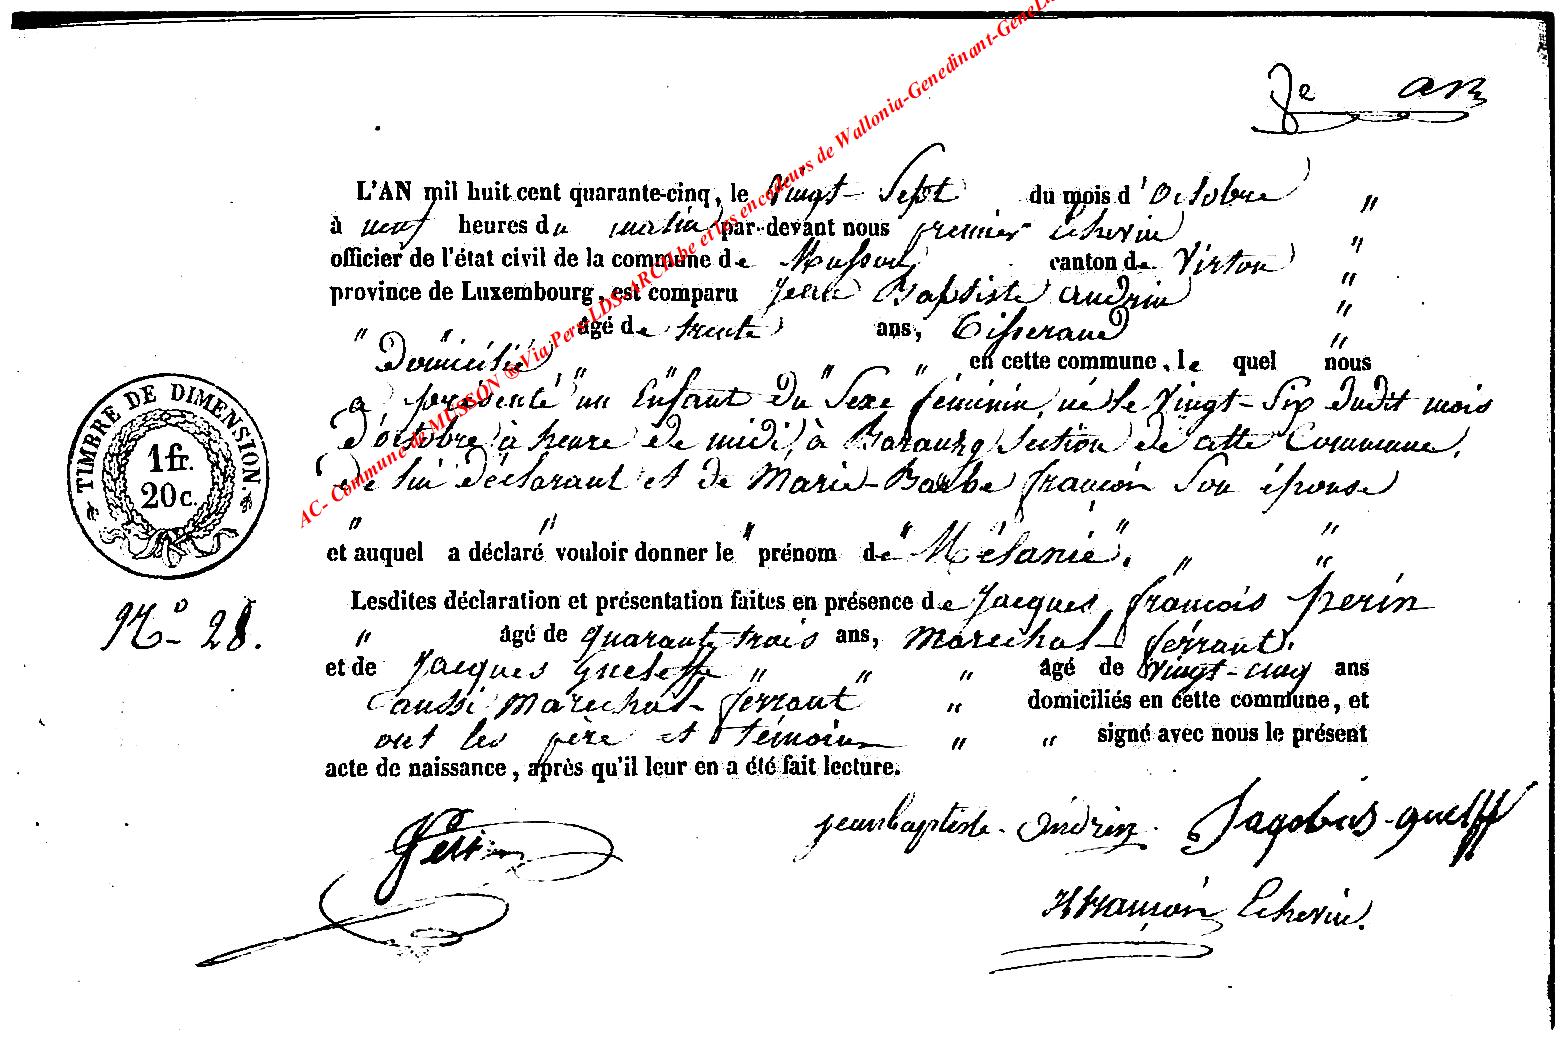 AC- Commune de MUSSON ® Via Pers LDS-ARCH.be et les encodeurs de Wallonia-Genedinant-GeneLux
L'AN mil huit cent quarante-cinq, le Vingt-Sept du mois d'Octobre "
à neuf heures du matin par-devant nous premier Echevin "
officier de l'état civil de la commune de Musson canton de Virton "
province de Luxembourg, est comparu Jean Baptiste Andrin "
" " âgé de trente ans, Tisserand "
Domicilié " " " en cette commune, le quel nous
a présenté un Enfant du Sexe féminin, né le Vingt-Six dudit mois
d'octobre à heure de midi, à Baranzy section de cette Commune.
de lui déclarant et de Marie-Barbe françois Son épouse
" " " " "
et auquel a déclaré vouloir donner le prénom de Mélanie. " "
Lesdites déclaration et présentation faites en présence de Jacques françois perin
" âgé de quarante trois ans, Marechal-ferrant.
et de Jacques Guelffe " " " âgé de Vingt-cinq ans
aussi Marechal-ferrant " domiciliés en cette commune, et
ont les père et témoins " " signé avec nous le présent
acte de naissance, après qu'il leur en a été fait lecture.
TIMBRE DE DIMENSION
1 fr.
20 c.
No 28.
jean baptiste-Andrin. Jagobus-guelff
Perin
françois Echevin.